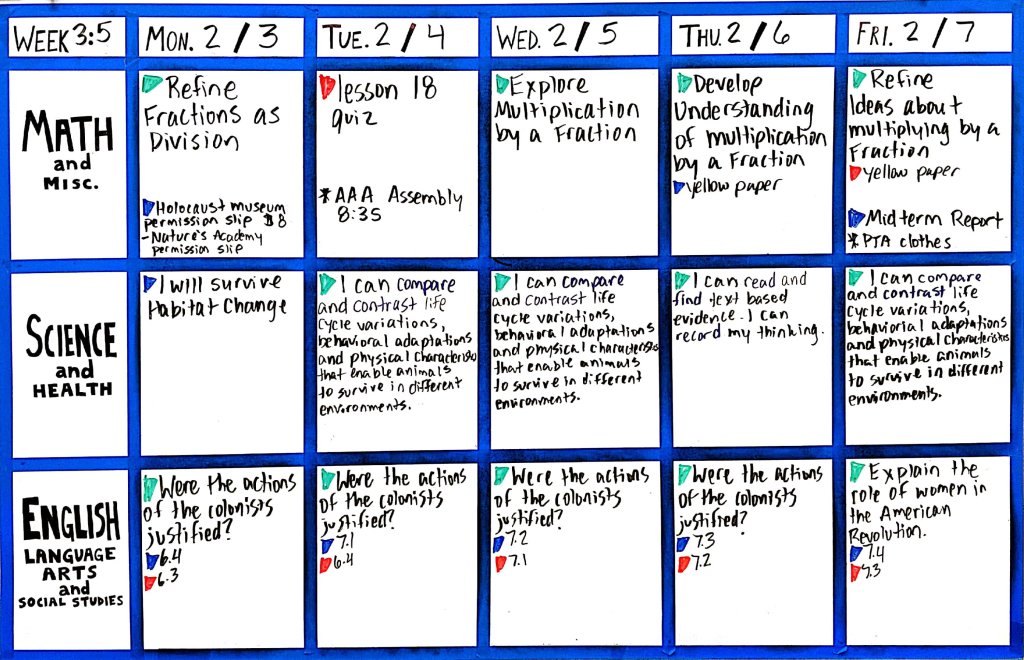 WEEK 3:5
MON. 2/3
TUE. 2/4
WED. 2/5
THU. 2/6
FRI. 2/7
MATH
and
MISC.
Refine
Fractions as
Division
Holocaust museum
permission slip $8
- Nature's Academy
permission slip
lesson 18
quiz
*AAA Assembly
8:35
Explore
Multiplication
by a Fraction
Develop
Understanding
of multiplication
by a Fraction
yellow paper
Refine
Ideas about
multiplying by a
Fraction
yellow paper
Midterm Report
*PTA clothes
SCIENCE
and
HEALTH
I will survive
Habitat Change
I can compare
and contrast life
cycle variations,
behavioral adaptations
and physical characteristics
that enable animals
to survive in different
environments.
I can compare
and contrast life
cycle variations,
behavioral adaptations
and physical characteristics
that enable animals
to survive in different
environments.
I can read and
find text based
evidence. I can
record my thinking.
I can compare
and contrast life
cycle variations,
behaviorial adaptations
and physical characteristics
that enable animals
to survive in different
environments.
ENGLISH
LANGUAGE
ARTS
and
SOCIAL STUDIES
Were the actions
of the colonists
justified?
6.4
6.3
Were the actions
of the colonists
justified?
7.1
6.4
Were the actions
of the colonists
justified?
7.2
7.1
Were the actions
of the colonists
justified?
7.3
7.2
Explain the
role of women in
the American
Revolution.
7.4
7.3